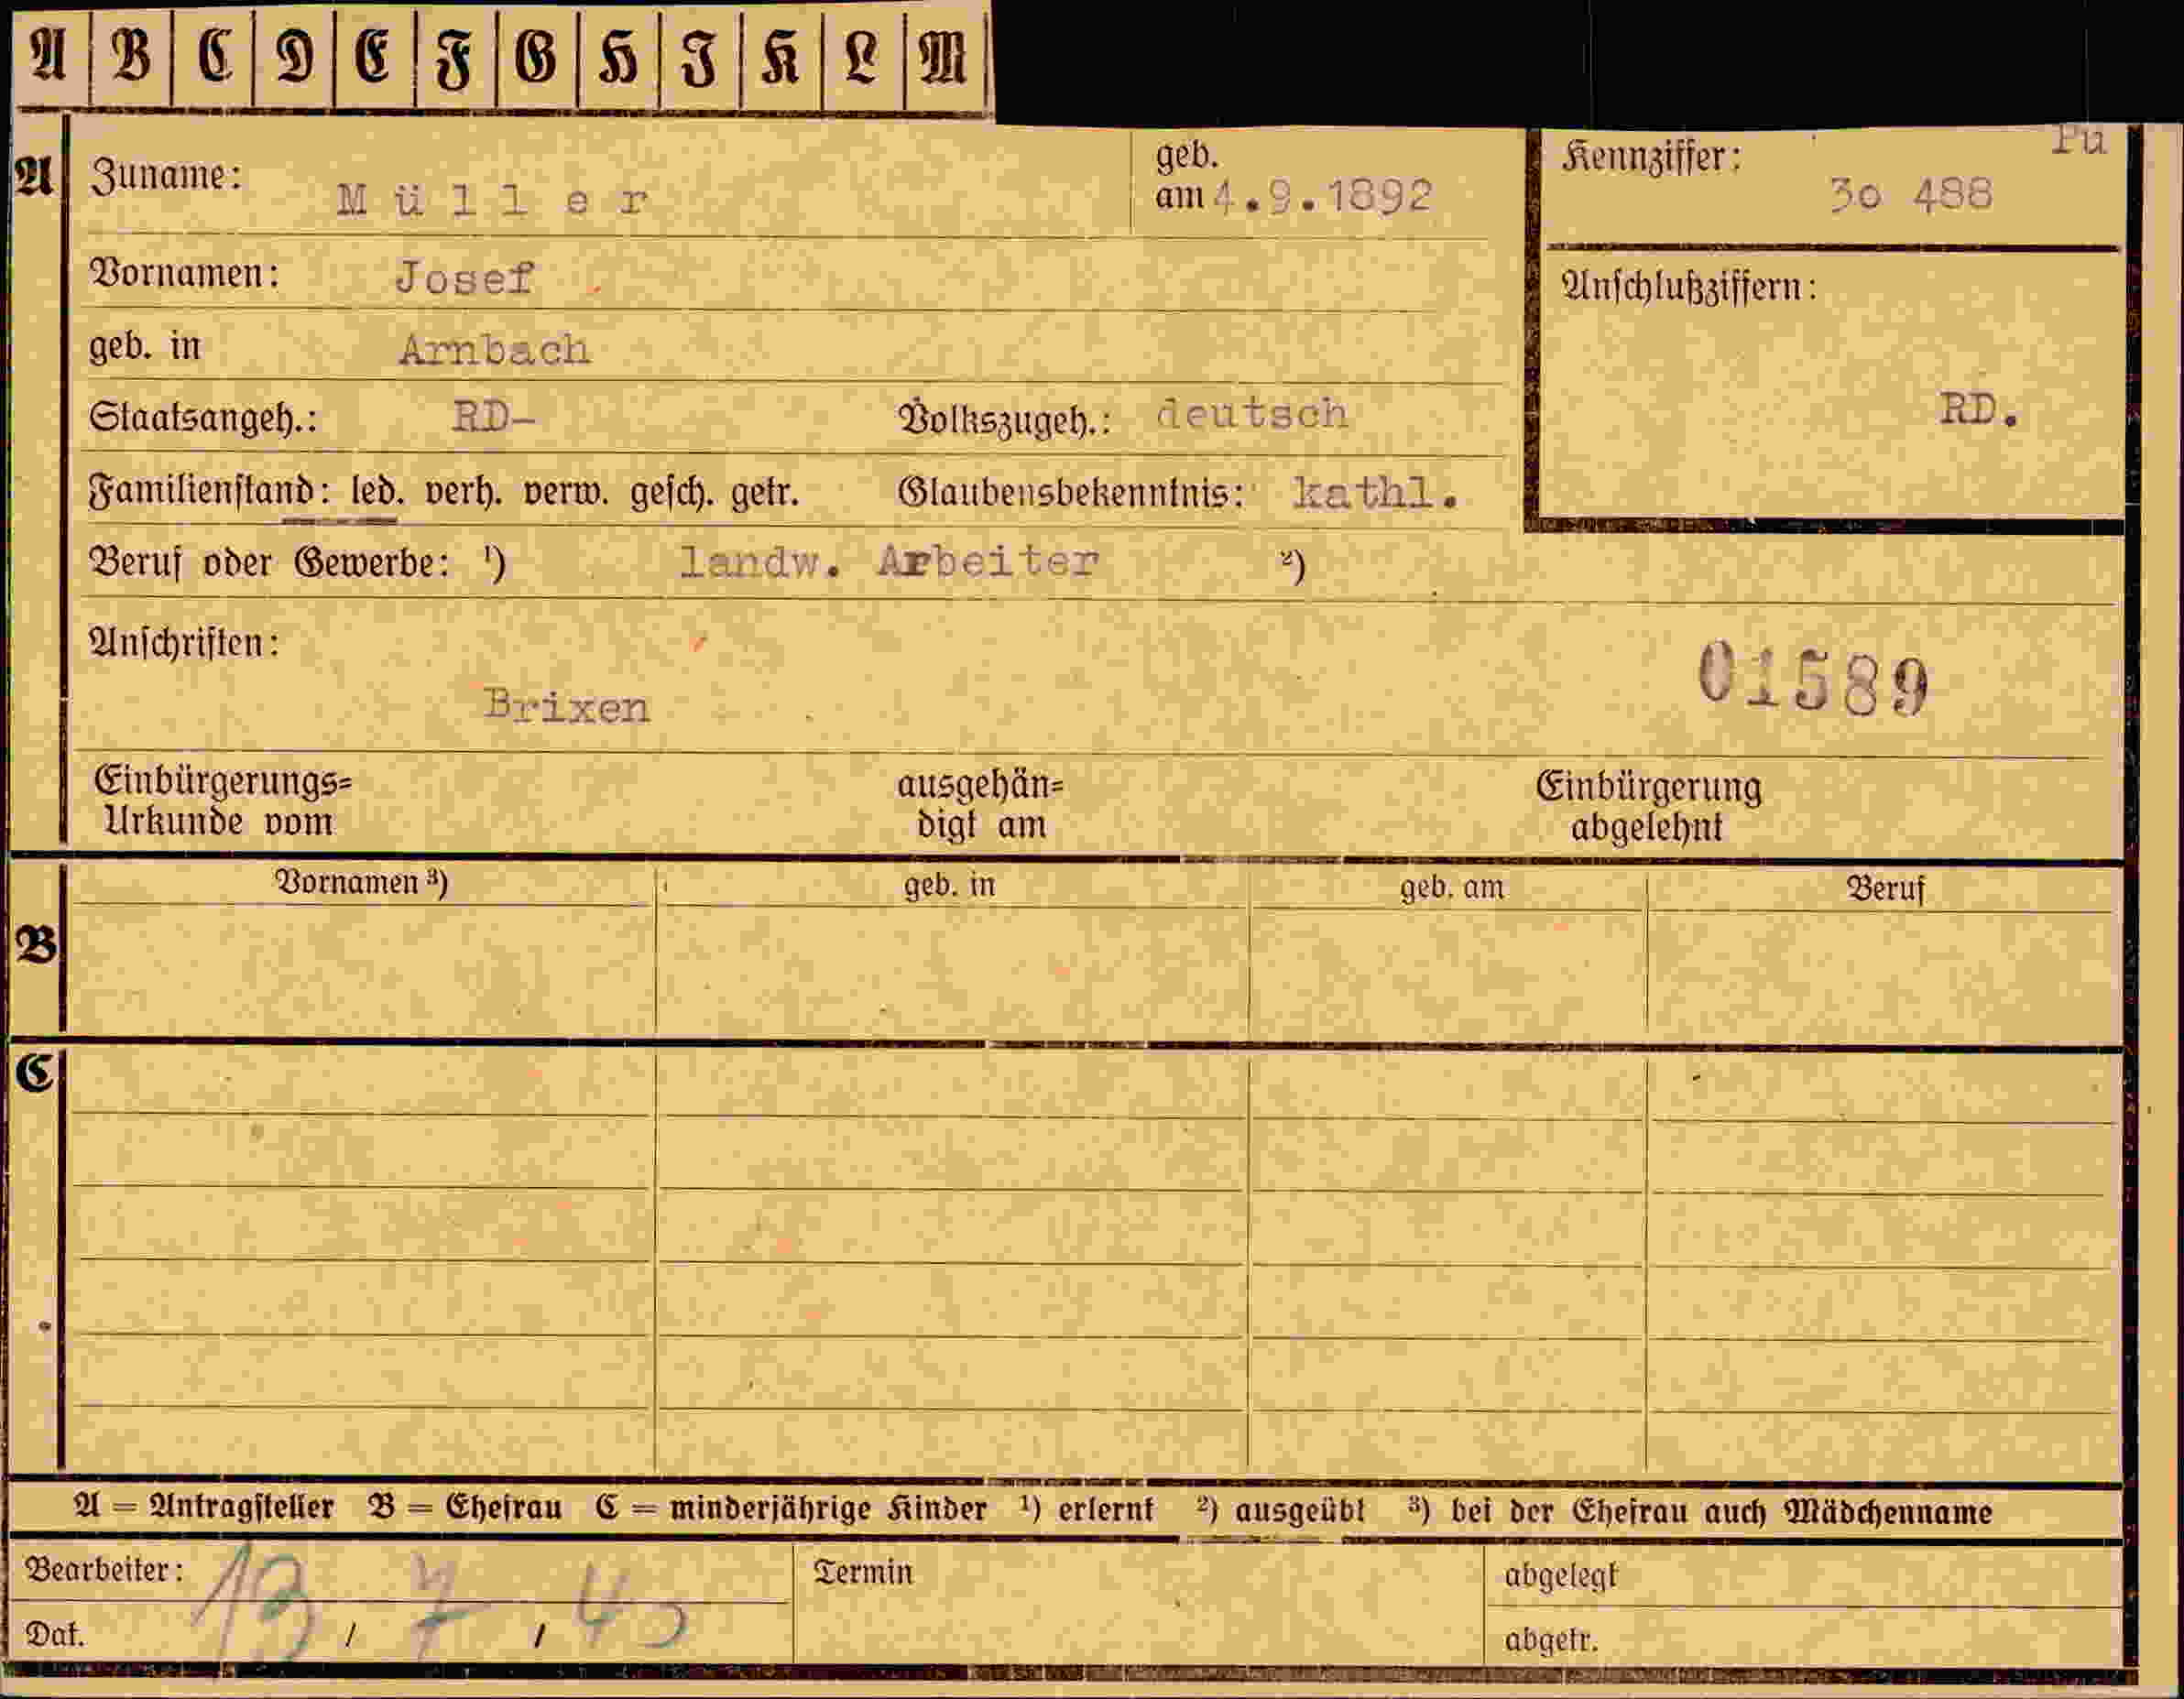 A B C D E F G H I K L M
Pu
A Zuname: Müller geb. am 4.9.1892 Kennziffer: 3o 488
Vornamen: Josef Anschlußziffern:
geb. in Arnbach
Staatsangeh.: RD- Volkszugeh.: deutsch RD.
Familienstand: led. verh. verw. gesch. getr. Glaubensbekenntnis: kathl.
Beruf oder Gewerbe: ¹) landw. Arbeiter ²)
Anschriften:
01589
Brixen
Einbürgerungs= ausgehän= Einbürgerung
Urkunde vom digt am abgelehnt
Vornamen ³) geb. in geb. am Beruf
B
C
A = Antragsteller B = Ehefrau C = minderjährige Kinder ¹) erlernt ²) ausgeübt ³) bei der Ehefrau auch Mädchenname
Bearbeiter: Termin abgelegt
Dat. / / abgetr.